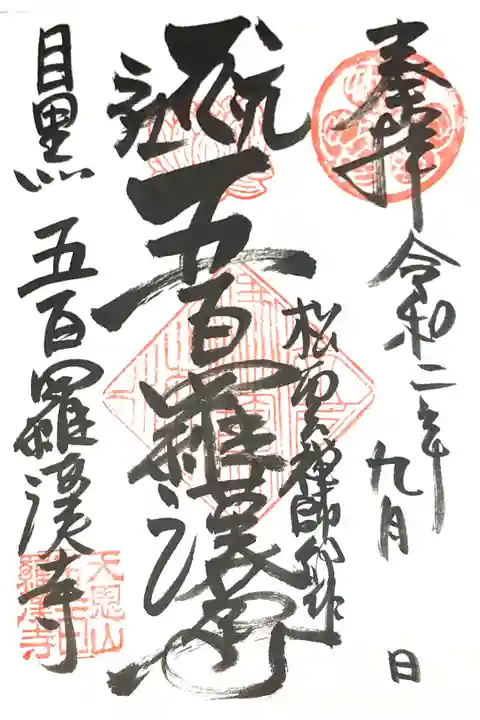 奉拝
令和二年九月 日
松雲禅師御作
五百羅漢
目黒 五百羅漢寺
天恩山五百羅漢寺